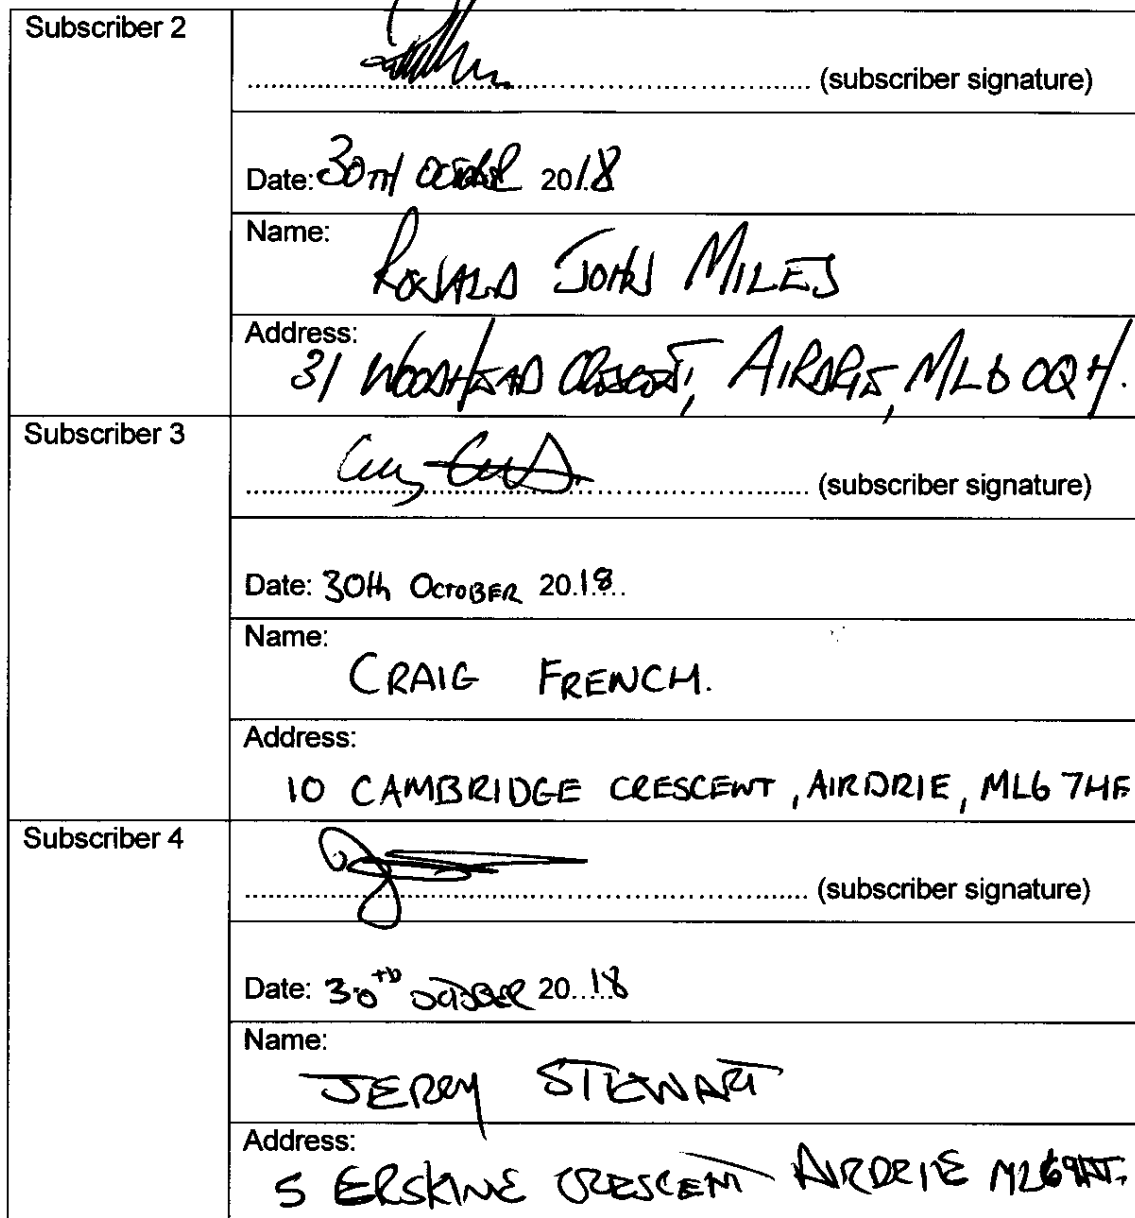 Subscriber 2
(subscriber signature)
Date: 30TH OCTOBER 2018
Name:
RONALD JOHN MILES
Address:
31 WOODHEAD CRESCENT, AIRDRIE, ML6 0QH.
Subscriber 3
(subscriber signature)
Date: 30th OCTOBER 2018
Name:
CRAIG FRENCH.
Address:
10 CAMBRIDGE CRESCENT, AIRDRIE, ML6 7HF
Subscriber 4
(subscriber signature)
Date: 30th OCTOBER 2018
Name:
JERRY STEWART
Address:
5 ERSKINE CRESCENT AIRDRIE